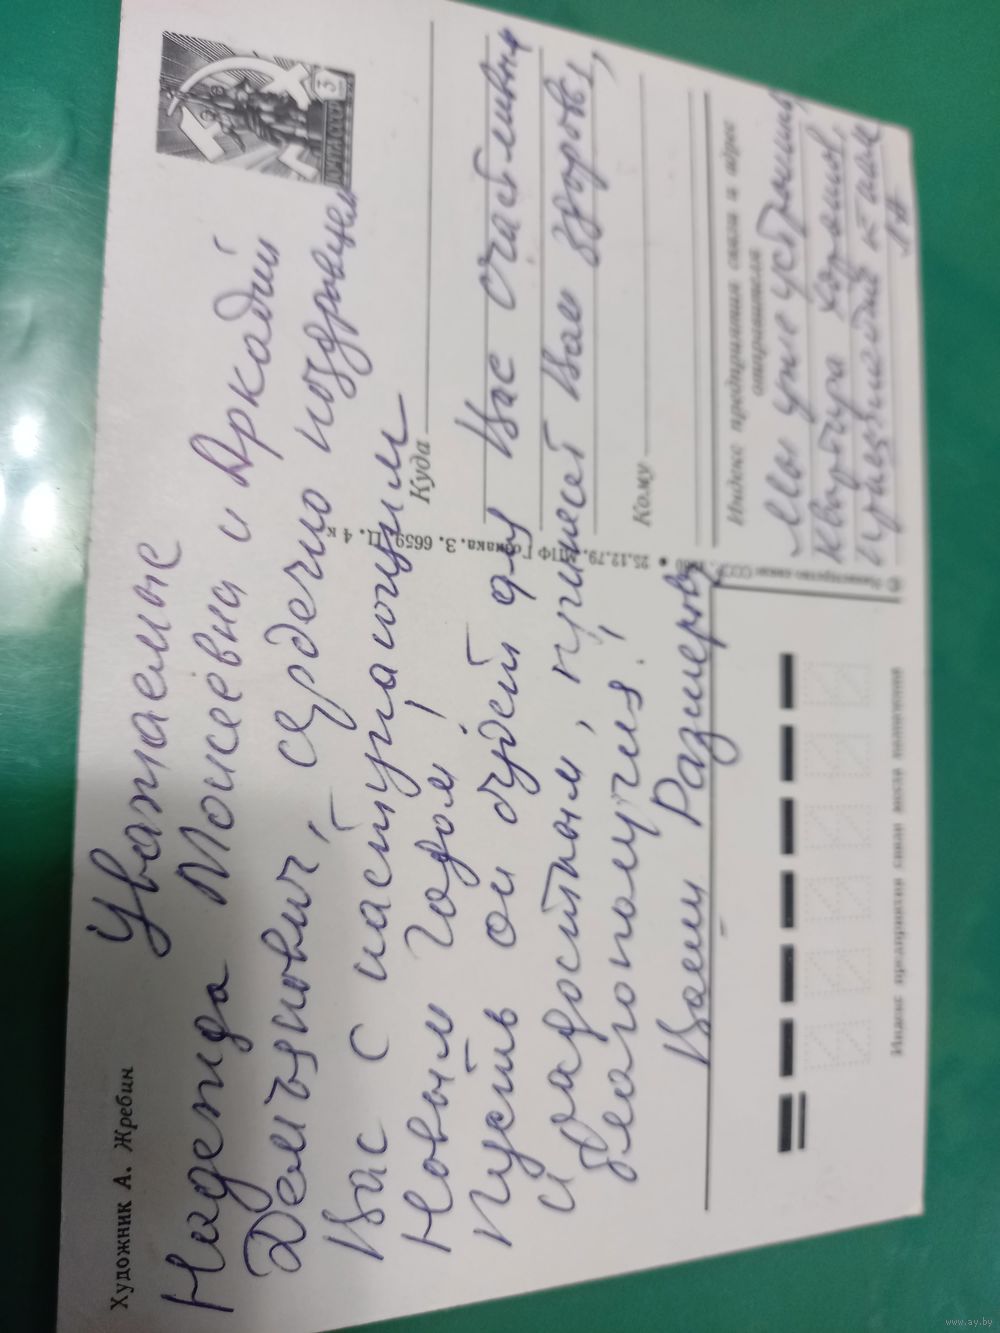 Художник А. Жребин
Уважаемые
Надежда Моисеевна и Аркадий
Демъянович, сердечно поздравляем
Вас с наступающим
Новым Годом!
Пусть он будет для Вас счастливым
и радостным, принесет Вам здоровья,
благополучия!
Ваши Размеровы
Куда
Кому
Индекс предприятия связи и адрес
отправителя
Мы уже устроились,
квартира хорошая,
Индекс предприятия связи места назначения
© Министерство связи СССР. 1980 • 25.12.79. МПФ Гознака. З. 6659. Ц. 4 к.
ПОЧТА СССР
3
www.ay.by